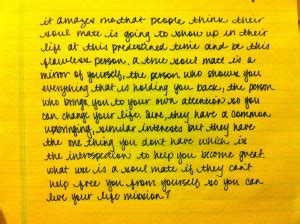 it amazes me that people think their
soul mate is going to show up in their
life at this predestined time and be this
flawless person. a true soul mate is a
mirror of yourself, the person who shows you
everything that is holding you back, the person
who brings you to your own attention so you
can change your life. Sure, they have a common
upbringing, similar interests but they have
the one thing you don't have which is
the introspection to help you become great.
what use is a soul mate if they can't
help free you from yourself so you can
live your life mission?